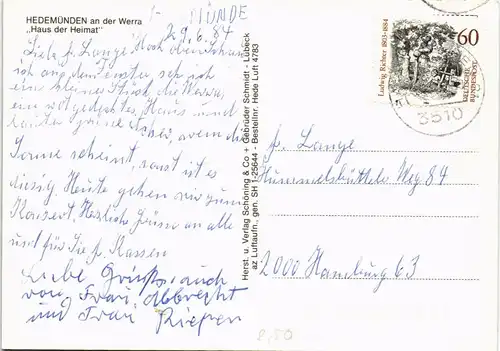 HEDEMÜNDEN an der Werra
„Haus der Heimat"
MÜNDE
29.6.84
Liebe Fr. Lange! Hoch oben schau
ich aus dem Fenster, seh ich
ein kleines Stück die Werra,
ein rotgedecktes Haus und
lauter grüne, wenn die
Sonne scheint, sonst ist es
diesig. Heute gehen wir zum
Konzert. Herzliche Grüsse an alle
und für Sie Fr. Kassen
Liebe Grüße auch
von Frau Albrecht
und Frau Riepen
Herst. u. Verlag Schöning & Co + Gebrüder Schmidt - Lübeck
az Luftaufn., gen. SH 1-25644 - Bestellnr. Hede Luft 4783
Ludwig Richter 1803-1884
60
DEUTSCHE BUNDESPOST
3510
Fr. Lange
Hummelsbüttler Weg 84
2000 Hamburg 63
2,50